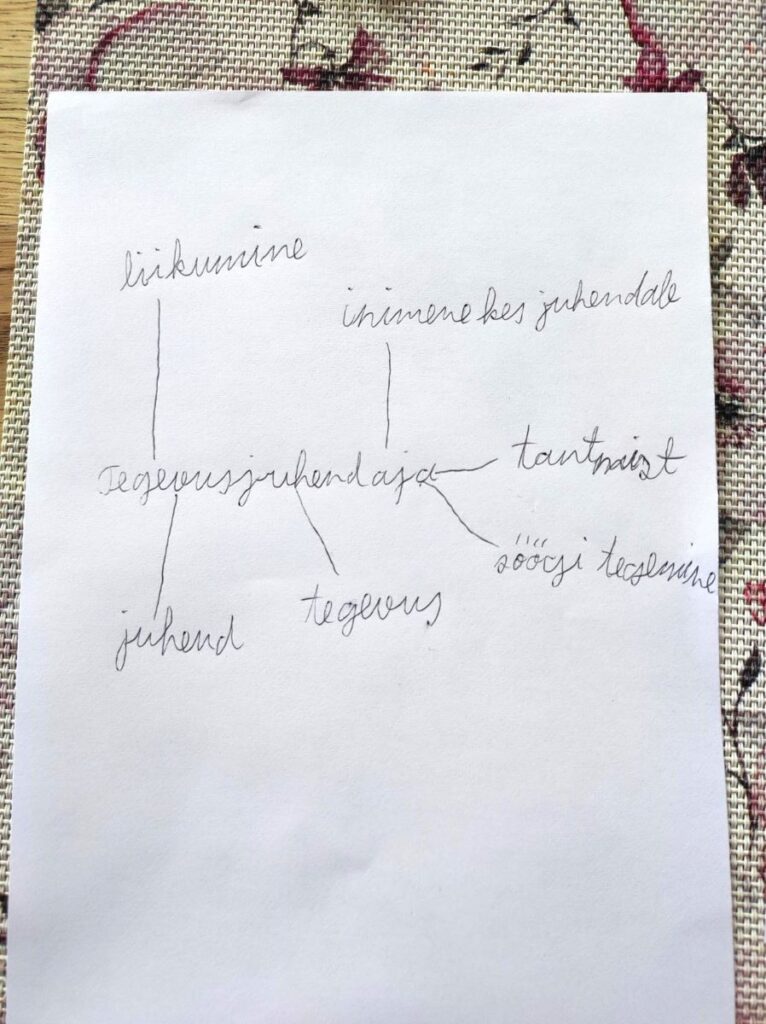 liikumine
inimene kes juhendab
Tegevusjuhendaja
söögi tegemine
tegevus
juhend